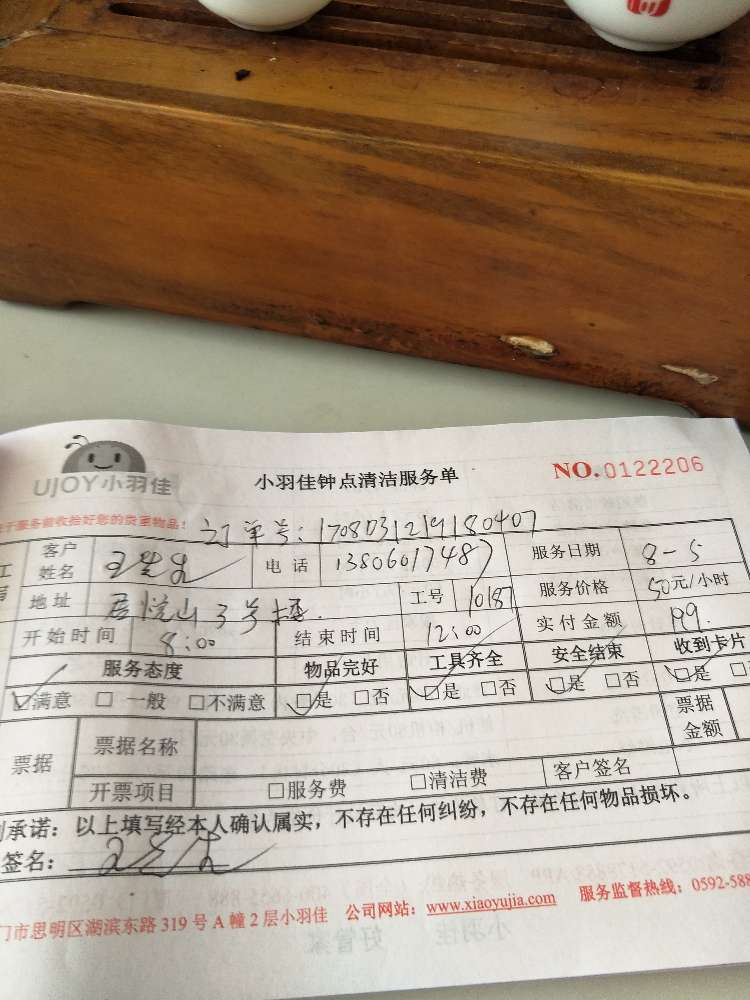 UJOY小羽佳 小羽佳钟点清洁服务单 NO.0122206
于服务前收拾好您的贵重物品! 订单号:
客户姓名 王先生 电话 13806017487 服务日期 8-5
地址 君悦山3号楼. 工号 10187 服务价格 50元/小时
开始时间 8:00 结束时间 12:00 实付金额 199.
服务态度 物品完好 工具齐全 安全结束 收到卡片
☑满意 □一般 □不满意 ☑是 □否 ☑是 □否 ☑是 □否 ☑是 □
票据 票据名称 票据金额
开票项目 □服务费 □清洁费 客户签名
承诺:以上填写经本人确认属实,不存在任何纠纷,不存在任何物品损坏。
签名: 王先生
门市思明区湖滨东路319号A幢2层小羽佳 公司网站:www.xiaoyujia.com 服务监督热线:0592-588